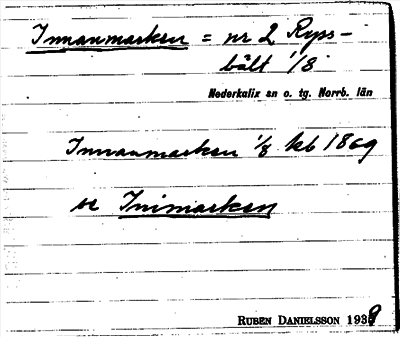 Innanmarken = nr 2 Ryss-
bält 1/8
Nederkalix sn o. tg. Norrb. län
Innanmarken 1/8 kb 1869
se Inimarken
RUBEN DANIELSSON 1938